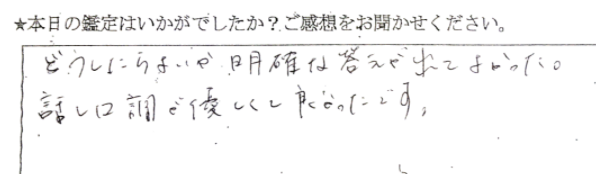 ★本日の鑑定はいかがでしたか？ご感想をお聞かせください。
どうしたらよいか明確な答えが出てよかった。
話し口調も優しくし良かったです。